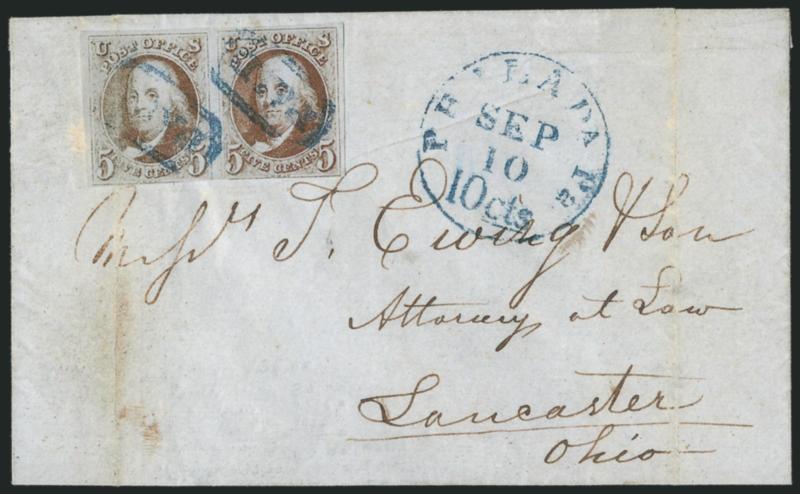 U S U S
POST OFFICE POST OFFICE
5 FIVE CENTS 5 5 FIVE CENTS 5
PHILADA Pa
SEP
10
10cts
Messrs T. Ewing & Son
Attorney at Law
Lancaster
Ohio